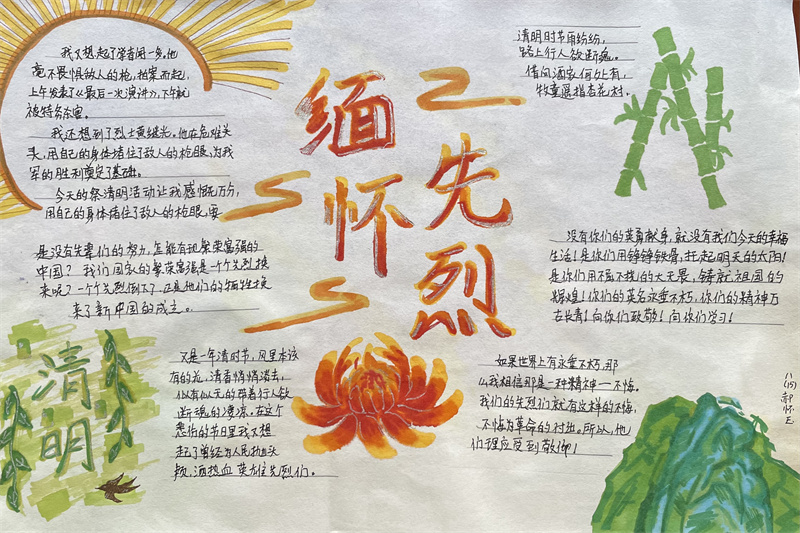 我又想起了学者闻一多。他
毫不畏惧敌人的枪,拍案而起,
上午发表了《最后一次演讲》,下午就
被特务杀害。
我还想到了烈士黄继光。他在危难关
头,用自己的身体堵住了敌人的枪眼,为我
军的胜利奠定了基础。
今天的祭清明活动让我感慨万分,
用自己的身体堵住了敌人的枪眼,要
是没有先辈们的努力,怎能有现繁荣富强的
中国?我们国家的繁荣富强是一个个先烈换
来呢?一个个先烈倒下了,正是他们的牺牲换
来了新中国的成立。
缅怀
先烈
清明时节雨纷纷,
路上行人欲断魂。
借问酒家何处有,
牧童遥指杏花村。
没有你们的英勇献身,就没有我们今天的幸福
生活!是你们用铮铮铁骨,托起明天的太阳!
是你们用不屈不挠的大无畏,铸就祖国的
辉煌!你们的英名永垂不朽,你们的精神万
古长青!向你们致敬!向你们学习!
清明
又是一年清时节,风里本该
有的花,清香悄悄溜去,
似有似无的带着行人欲
断魂的凄凉,在这个
悲伤的节日里我又想
起了曾经为人民抛头
颅,洒热血 英雄先烈们。
如果世界上有永垂不朽,那
么我相信那是一种精神一不悔。
我们的先烈们就有这样的不悔,
不悔为革命的付出。所以,他
们理应受到敬仰!
八(15)郝怀玉